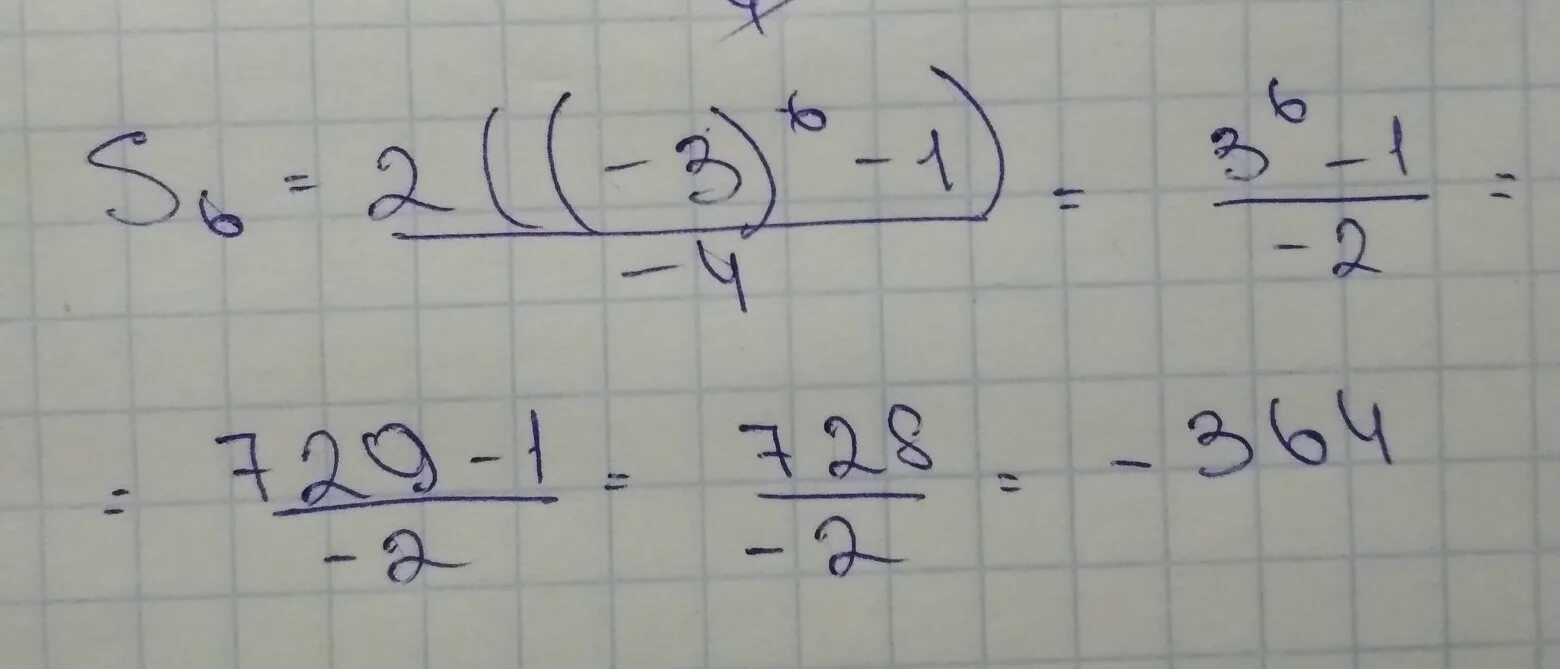 S₆ = 2((-3)⁶ - 1) / -4 = 3⁶ - 1 / -2 =
= 729 - 1 / -2 = 728 / -2 = - 364